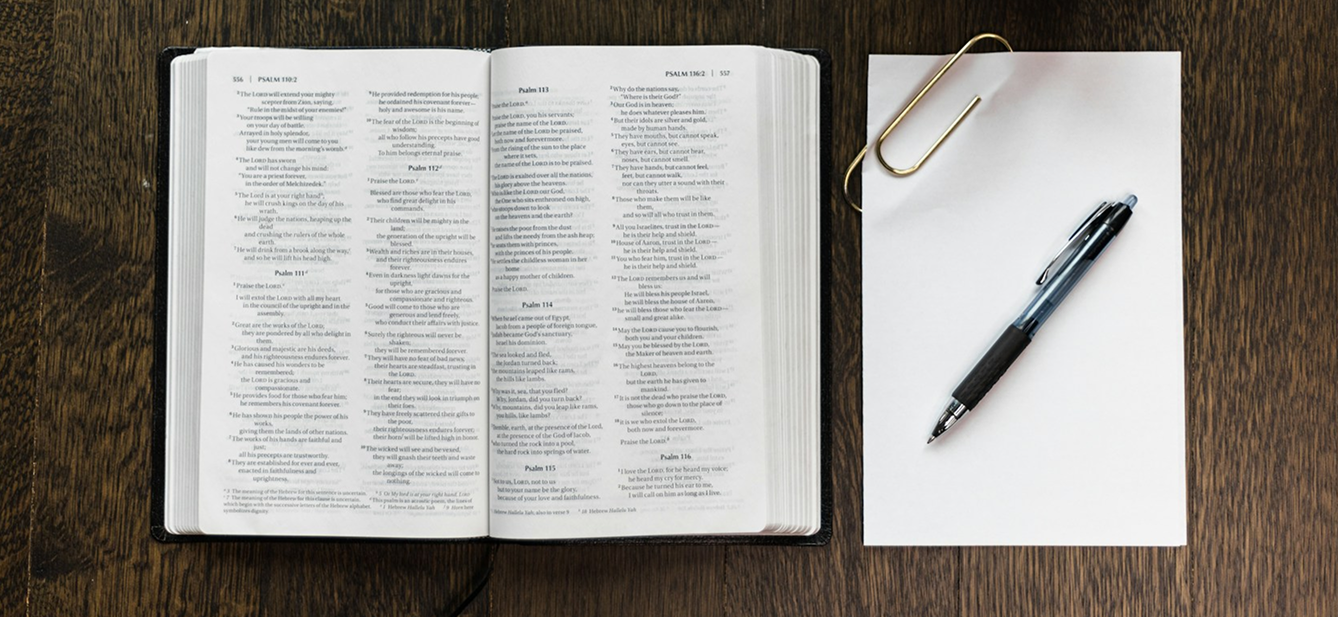 556 | PSALM 110:2
²The LORD will extend your mighty
scepter from Zion, saying,
"Rule in the midst of your enemies!"
³Your troops will be willing
on your day of battle.
Arrayed in holy splendor,
your young men will come to you
like dew from the morning's womb.
⁴The LORD has sworn
and will not change his mind:
"You are a priest forever,
in the order of Melchizedek."
⁵The Lord is at your right hand;
he will crush kings on the day of his
wrath.
⁶He will judge the nations, heaping up the
dead
and crushing the rulers of the whole
earth.
⁷He will drink from a brook along the way,
and so he will lift his head high.
Psalm 111
¹Praise the LORD.
I will extol the LORD with all my heart
in the council of the upright and in the
assembly.
²Great are the works of the LORD;
they are pondered by all who delight in
them.
³Glorious and majestic are his deeds,
and his righteousness endures forever.
⁴He has caused his wonders to be
remembered;
the LORD is gracious and
compassionate.
⁵He provides food for those who fear him;
he remembers his covenant forever.
⁶He has shown his people the power of his
works,
giving them the lands of other nations.
⁷The works of his hands are faithful and
just;
all his precepts are trustworthy.
⁸They are established for ever and ever,
enacted in faithfulness and
uprightness.
⁹He provided redemption for his people;
he ordained his covenant forever—
holy and awesome is his name.
¹⁰The fear of the LORD is the beginning of
wisdom;
all who follow his precepts have good
understanding.
To him belongs eternal praise.
Psalm 112
¹Praise the LORD.
Blessed are those who fear the LORD,
who find great delight in his
commands.
²Their children will be mighty in the
land;
the generation of the upright will be
blessed.
³Wealth and riches are in their houses,
and their righteousness endures
forever.
⁴Even in darkness light dawns for the
upright,
for those who are gracious and
compassionate and righteous.
⁵Good will come to those who are
generous and lend freely,
who conduct their affairs with justice.
⁶Surely the righteous will never be
shaken;
they will be remembered forever.
⁷They will have no fear of bad news;
their hearts are steadfast, trusting in
the LORD.
⁸Their hearts are secure, they will have no
fear;
in the end they will look in triumph on
their foes.
⁹They have freely scattered their gifts to
the poor,
their righteousness endures forever;
their horn will be lifted high in honor.
¹⁰The wicked will see and be vexed,
they will gnash their teeth and waste
away;
the longings of the wicked will come to
nothing.
The meaning of the Hebrew for this sentence is uncertain.
The meaning of the Hebrew for this clause is uncertain.
which begin with the successive letters of the Hebrew alphabet.
symbolizes dignity.
5 Or My lord is at your right hand, LORD
This psalm is an acrostic poem, the lines of
1 Hebrew Hallelu Yah 9 Horn here
PSALM 116:2 | 557
Psalm 113
Praise the LORD.
Praise the LORD, you his servants;
praise the name of the LORD.
the name of the LORD be praised,
both now and forevermore.
the rising of the sun to the place
where it sets,
the name of the LORD is to be praised.
LORD is exalted over all the nations,
his glory above the heavens.
is like the LORD our God,
the One who sits enthroned on high,
who stoops down to look
on the heavens and the earth?
raises the poor from the dust
and lifts the needy from the ash heap;
seats them with princes,
with the princes of his people.
settles the childless woman in her
home
as a happy mother of children.
Praise the LORD.
Psalm 114
When Israel came out of Egypt,
Jacob from a people of foreign tongue,
Judah became God's sanctuary,
Israel his dominion.
The sea looked and fled,
the Jordan turned back;
the mountains leaped like rams,
the hills like lambs.
Why was it, sea, that you fled?
Why, Jordan, did you turn back?
Why, mountains, did you leap like rams,
you hills, like lambs?
Tremble, earth, at the presence of the Lord,
at the presence of the God of Jacob,
who turned the rock into a pool,
the hard rock into springs of water.
Psalm 115
Not to us, LORD, not to us
but to your name be the glory,
because of your love and faithfulness.
²Why do the nations say,
"Where is their God?"
³Our God is in heaven;
he does whatever pleases him.
⁴But their idols are silver and gold,
made by human hands.
⁵They have mouths, but cannot speak,
eyes, but cannot see.
⁶They have ears, but cannot hear,
noses, but cannot smell.
⁷They have hands, but cannot feel,
feet, but cannot walk,
nor can they utter a sound with their
throats.
⁸Those who make them will be like
them,
and so will all who trust in them.
⁹All you Israelites, trust in the LORD—
he is their help and shield.
¹⁰House of Aaron, trust in the LORD—
he is their help and shield.
¹¹You who fear him, trust in the LORD—
he is their help and shield.
¹²The LORD remembers us and will
bless us:
He will bless his people Israel,
he will bless the house of Aaron,
¹³he will bless those who fear the LORD—
small and great alike.
¹⁴May the LORD cause you to flourish,
both you and your children.
¹⁵May you be blessed by the LORD,
the Maker of heaven and earth.
¹⁶The highest heavens belong to the
LORD,
but the earth he has given to
mankind.
¹⁷It is not the dead who praise the LORD,
those who go down to the place of
silence;
¹⁸it is we who extol the LORD,
both now and forevermore.
Praise the LORD.
Psalm 116
¹I love the LORD, for he heard my voice;
he heard my cry for mercy.
²Because he turned his ear to me,
I will call on him as long as I live.
Hebrew Hallelu Yah; also in verse 9 18 Hebrew Hallelu Yah